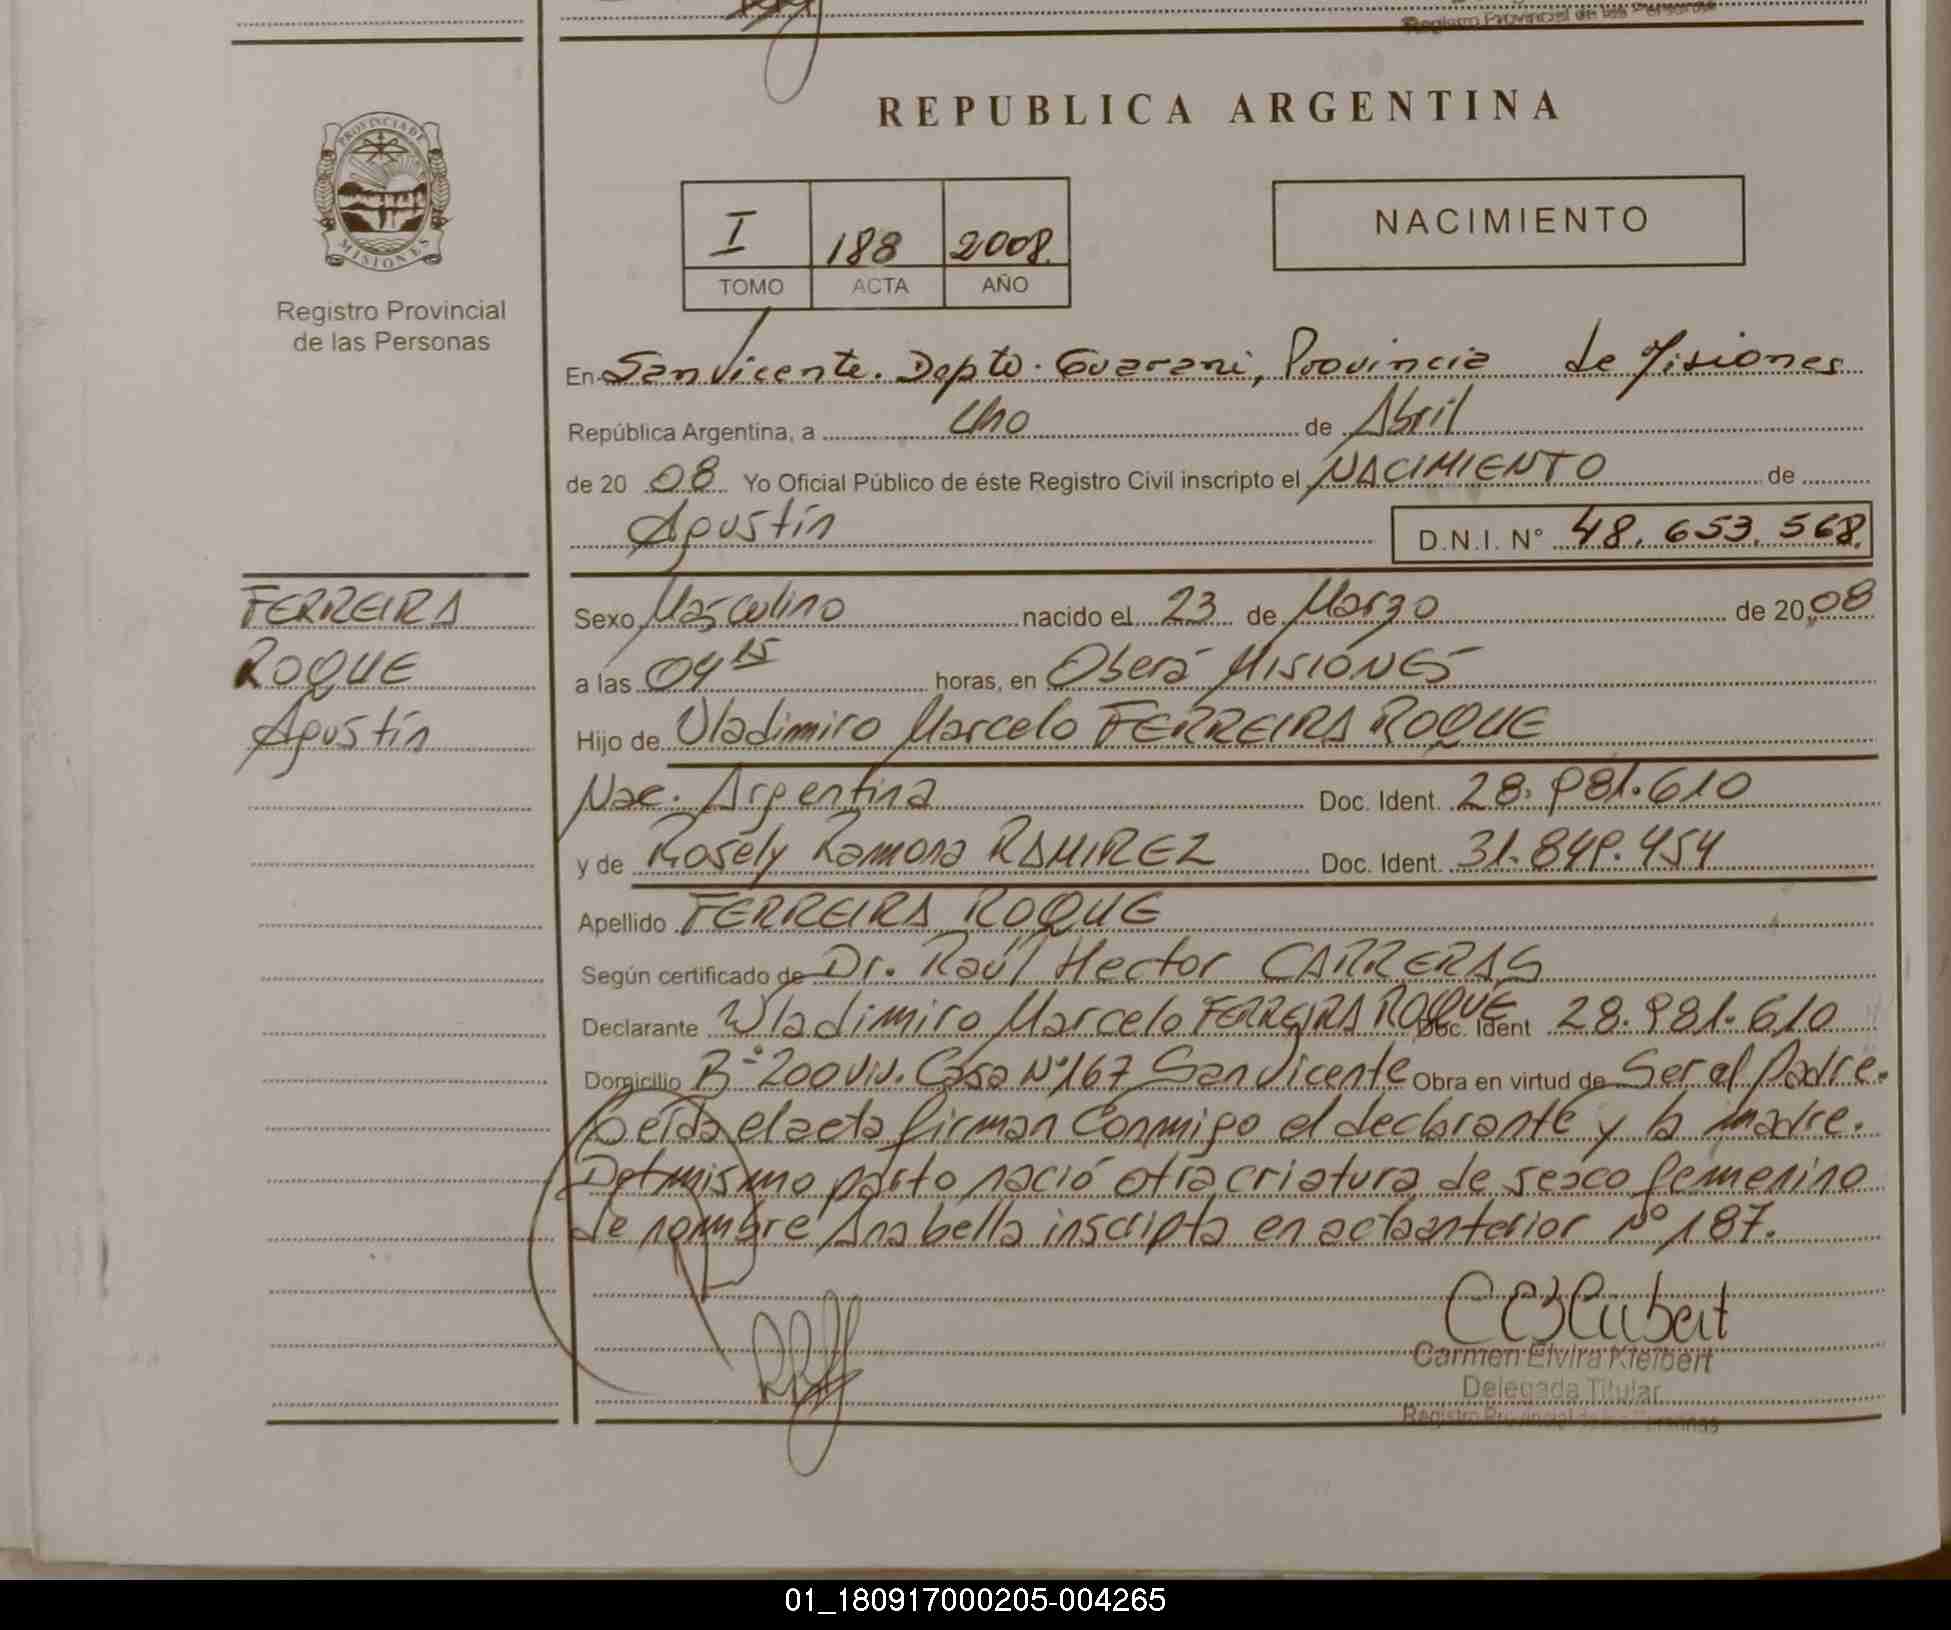 Registro Provincial de las Personas
PROVINCIA DE
MISIONES
Registro Provincial
de las Personas
REPUBLICA ARGENTINA
I 188 2008.
TOMO ACTA AÑO
NACIMIENTO
En San Vicente. Depto. Guarani, Provincia de Misiones
República Argentina, a Uno de Abril
de 20 08 Yo Oficial Público de éste Registro Civil inscripto el NACIMIENTO de
Agustín D.N.I. N° 48.653.568.
FERREIRA
ROQUE
Agustín
Sexo Masculino nacido el 23 de Marzo de 20 08
a las 04 15 horas, en Oberá MISIONES
Hijo de Wladimiro Marcelo FERREIRA ROQUE
Nac. Argentina Doc. Ident. 28.981.610
y de Rosely Ramona RAMIREZ Doc. Ident. 31.849.454
Apellido FERREIRA ROQUE
Según certificado de Dr. Raúl Hector CARRERAS
Declarante Wladimiro Marcelo FERREIRA ROQUE Doc. Ident 28.981.610
Domicilio B° 200 Viv. Casa N°167 San Vicente Obra en virtud de Ser el Padre.
Leída el acta firman Conmigo el declarante y la madre.
Del mismo parto nació otra criatura de sexo femenino
de nombre Anabella inscripta en acta anterior N° 187.
Carmen Elvira Kleibert
Delegada Titular
Registro Provincial de las Personas
01_180917000205-004265